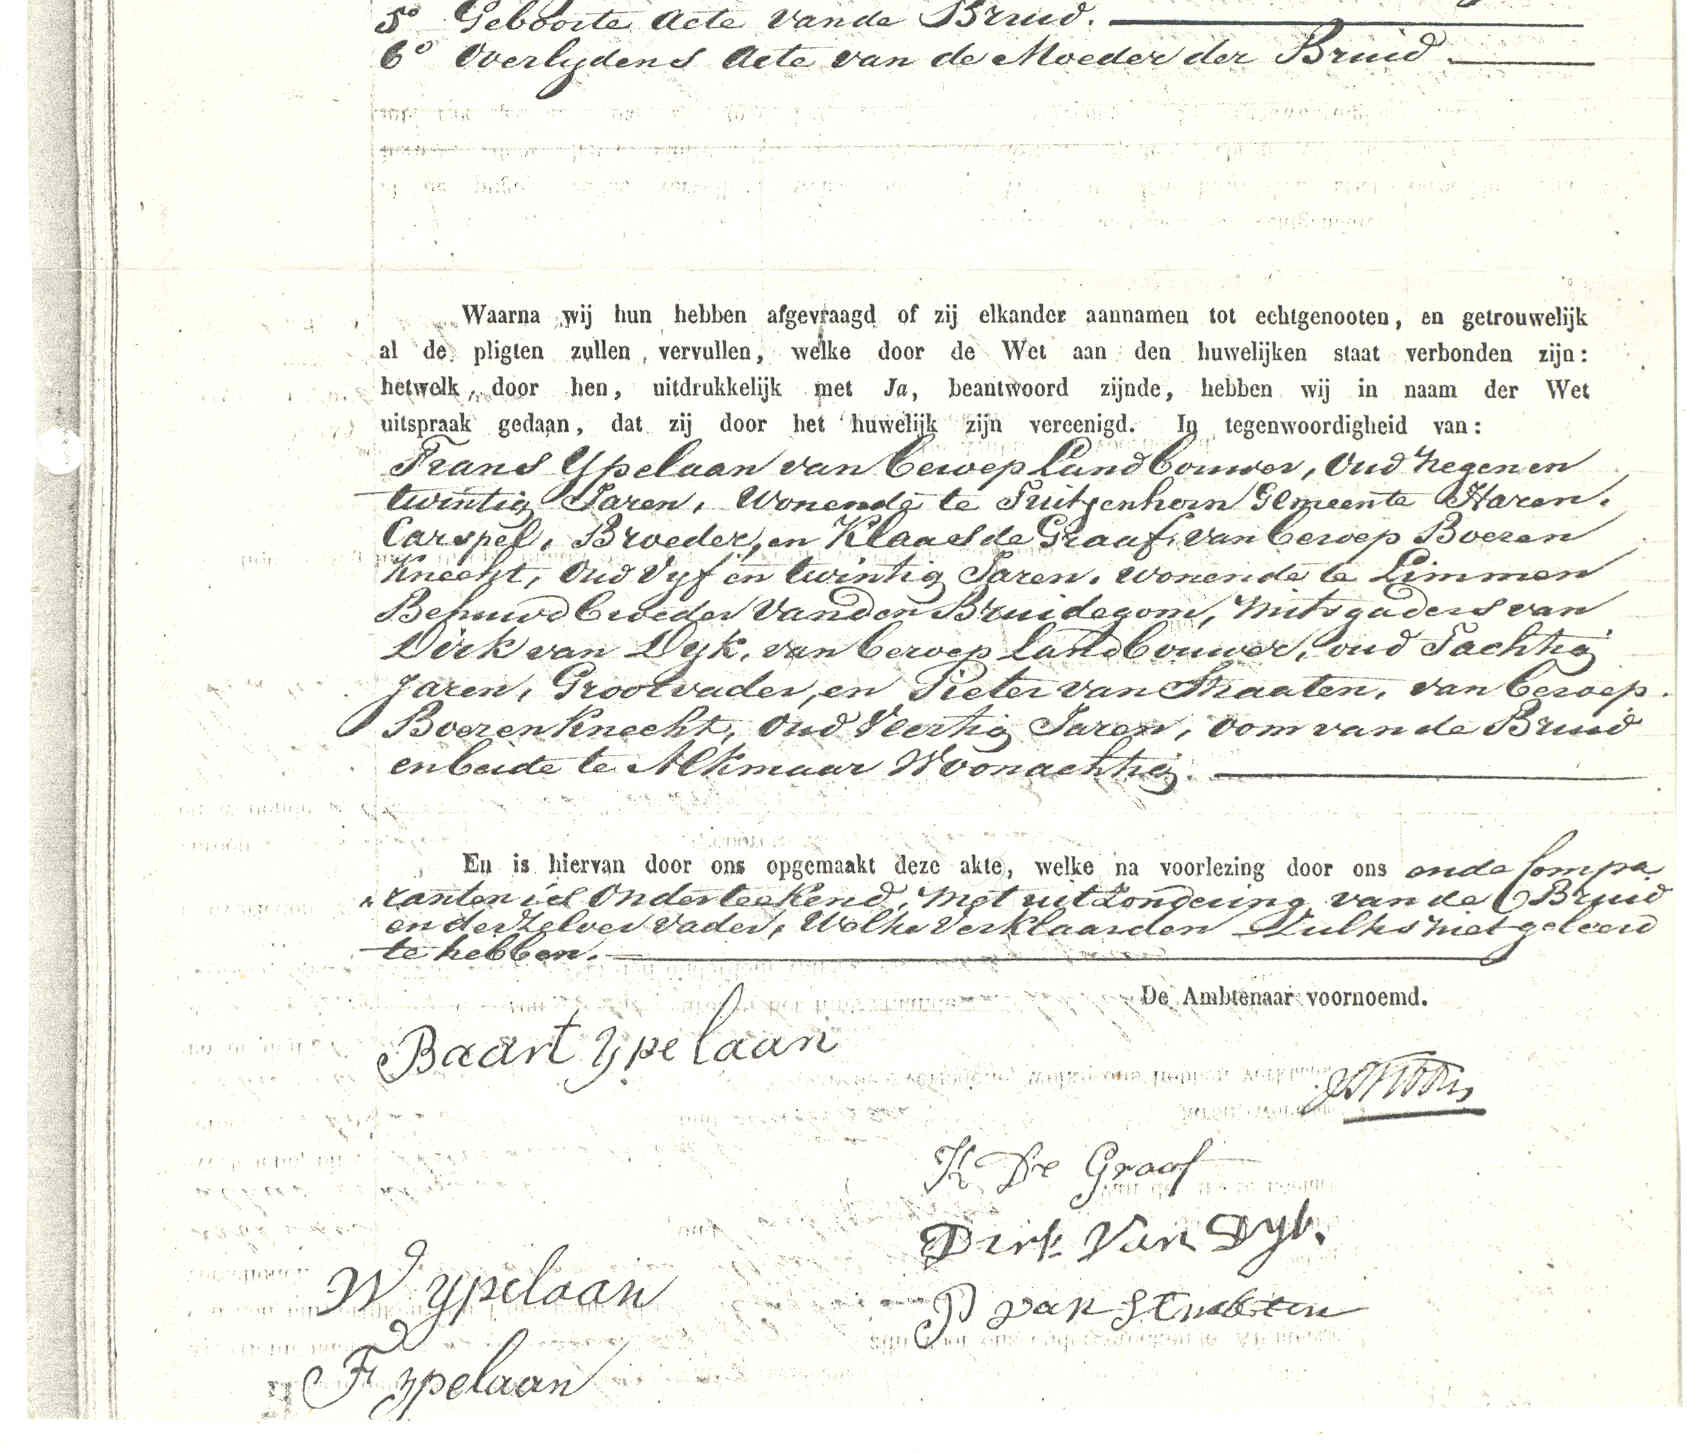 5° Geboorte Acte van de Bruid.
6° Overlydens Acte van de Moeder der Bruid.
Waarna wij hun hebben afgevraagd of zij elkander aannamen tot echtgenooten, en getrouwelijk
al de pligten zullen vervullen, welke door de Wet aan den huwelijken staat verbonden zijn:
hetwelk door hen, uitdrukkelijk met Ja, beantwoord zijnde, hebben wij in naam der Wet
uitspraak gedaan, dat zij door het huwelijk zijn vereenigd. In tegenwoordigheid van:
Frans Ypelaan van beroep Landbouwer, oud Negen en
twintig Jaren, Wonende te Tuitjenhorn Gemeente Haren-
Carspel, Broeder, en Klaas de Graaf, van beroep Boeren
Knecht, oud Vyf en twintig Jaren, wonende te Limmen
Behuwd broeder van den Bruidegom, mitsgaders van
Dirk van Dyk, van beroep Landbouwer, oud Tachtig
Jaren, Grootvader, en Pieter van Straaten, van beroep
Boerenknecht, oud Veertig Jaren, oom van de Bruid
en beide te Alkmaar Woonachtig.
En is hiervan door ons opgemaakt deze akte, welke na voorlezing door ons ende Compa
ranten is Onderteekend, met uitzondering van de Bruid
en derzelver Vader, Welke Verklaarden Zulks niet geleerd
te hebben.
De Ambtenaar voornoemd.
Baart Ypelaan
K De Graaf
Dirk Van Dyk.
W ypelaan
P van Straaten
F ypelaan